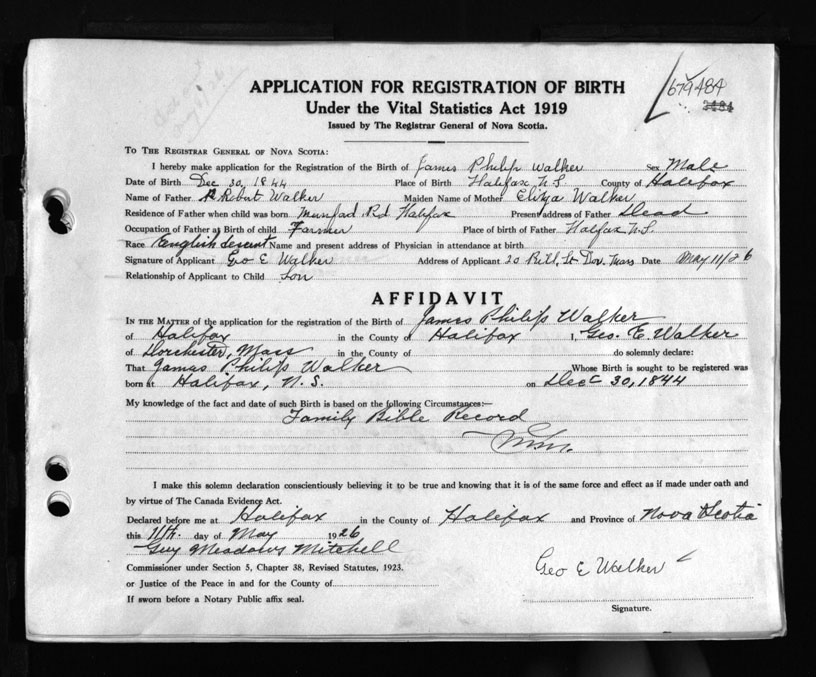 APPLICATION FOR REGISTRATION OF BIRTH
679484
Under the Vital Statistics Act 1919
2484
Issued by The Registrar General of Nova Scotia.
TO THE REGISTRAR GENERAL OF NOVA SCOTIA:
I hereby make application for the Registration of the Birth of James Philip Walker Sex Male
Date of Birth Dec 30, 1844 Place of Birth Halifax N.S. County of Halifax
Name of Father Robert Walker Maiden Name of Mother Eliza Walker
Residence of Father when child was born Munford Rd Halifax Present address of Father Dead
Occupation of Father at Birth of child Farmer Place of birth of Father Halifax N.S.
Race English descent Name and present address of Physician in attendance at birth
Signature of Applicant Geo E Walker Address of Applicant 20 St Dor. Mass Date May 11/26
Relationship of Applicant to Child Son
AFFIDAVIT
IN THE MATTER of the application for the registration of the Birth of James Philip Walker
of Halifax in the County of Halifax I, Geo. E. Walker
of Dorchester, Mass in the County of do solemnly declare:
That James Philip Walker Whose Birth is sought to be registered was
born at Halifax, N.S. on Dec 30, 1844
My knowledge of the fact and date of such Birth is based on the following Circumstances:—
Family Bible Record
I make this solemn declaration conscientiously believing it to be true and knowing that it is of the same force and effect as if made under oath and
by virtue of The Canada Evidence Act.
Declared before me at Halifax in the County of Halifax and Province of Nova Scotia
this 11th. day of May 1926
Guy Meadows Mitchell
Commissioner under Section 5, Chapter 38, Revised Statutes, 1923.
Geo E Walker
or Justice of the Peace in and for the County of
If sworn before a Notary Public affix seal.
Signature.